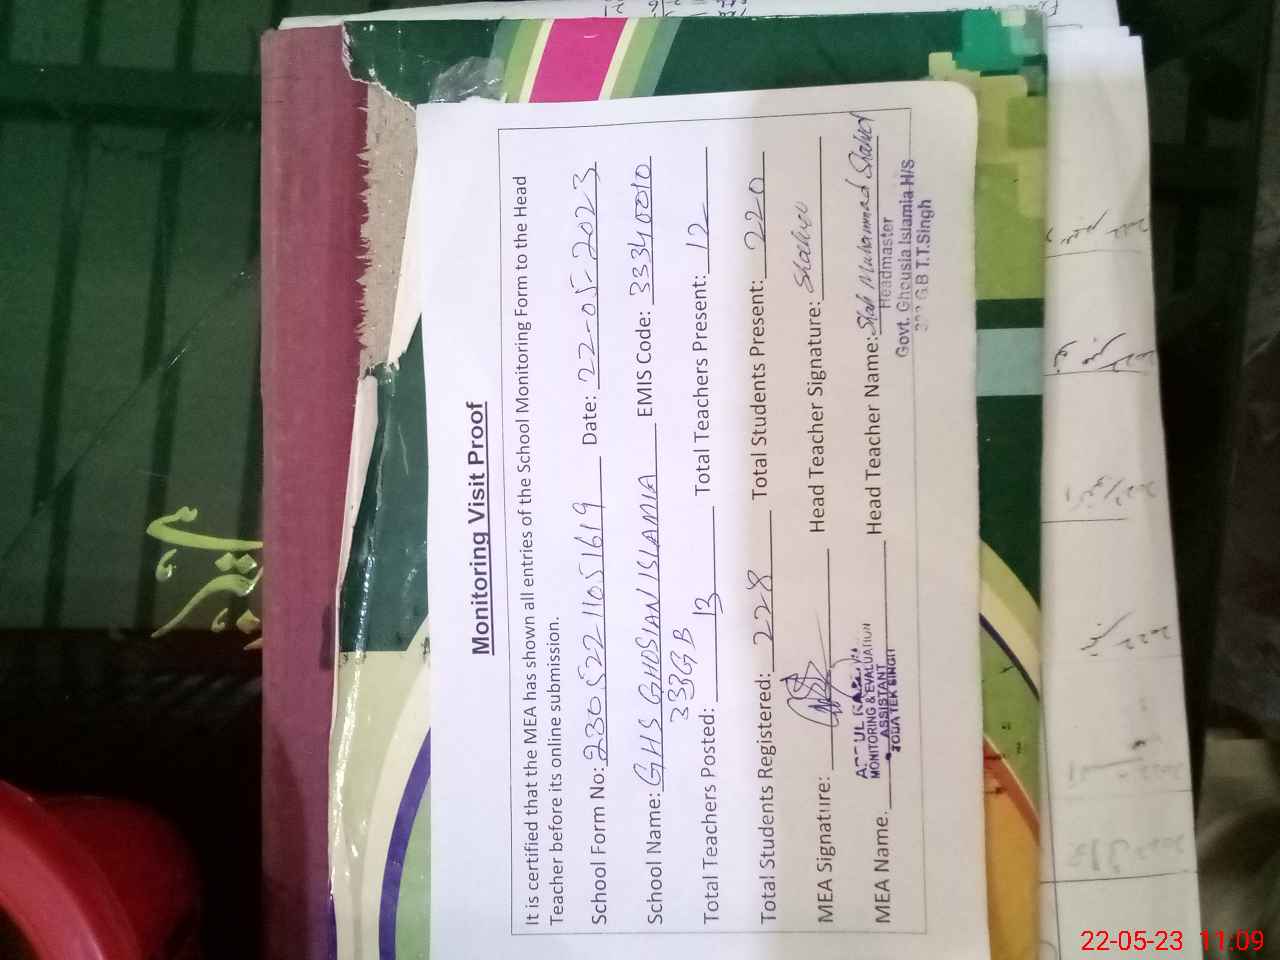 Monitoring Visit Proof
It is certified that the MEA has shown all entries of the School Monitoring Form to the Head
Teacher before its online submission.
School Form No: 23052211051619 Date: 22-05-2023
School Name: GHS GHOSIAN ISLAMIA EMIS Code: 33340010
333GB
Total Teachers Posted: 13 Total Teachers Present: 12
Total Students Registered: 228 Total Students Present: 220
MEA Signature: Head Teacher Signature:
MEA Name. Head Teacher Name: Shah Muhammad Shahid
MONITORING & EVALUATION
ASSISTANT
TOBA TEK SINGH
Headmaster
Govt. Ghousia Islamia H/S
GB T.T.Singh
22-05-23 11:09